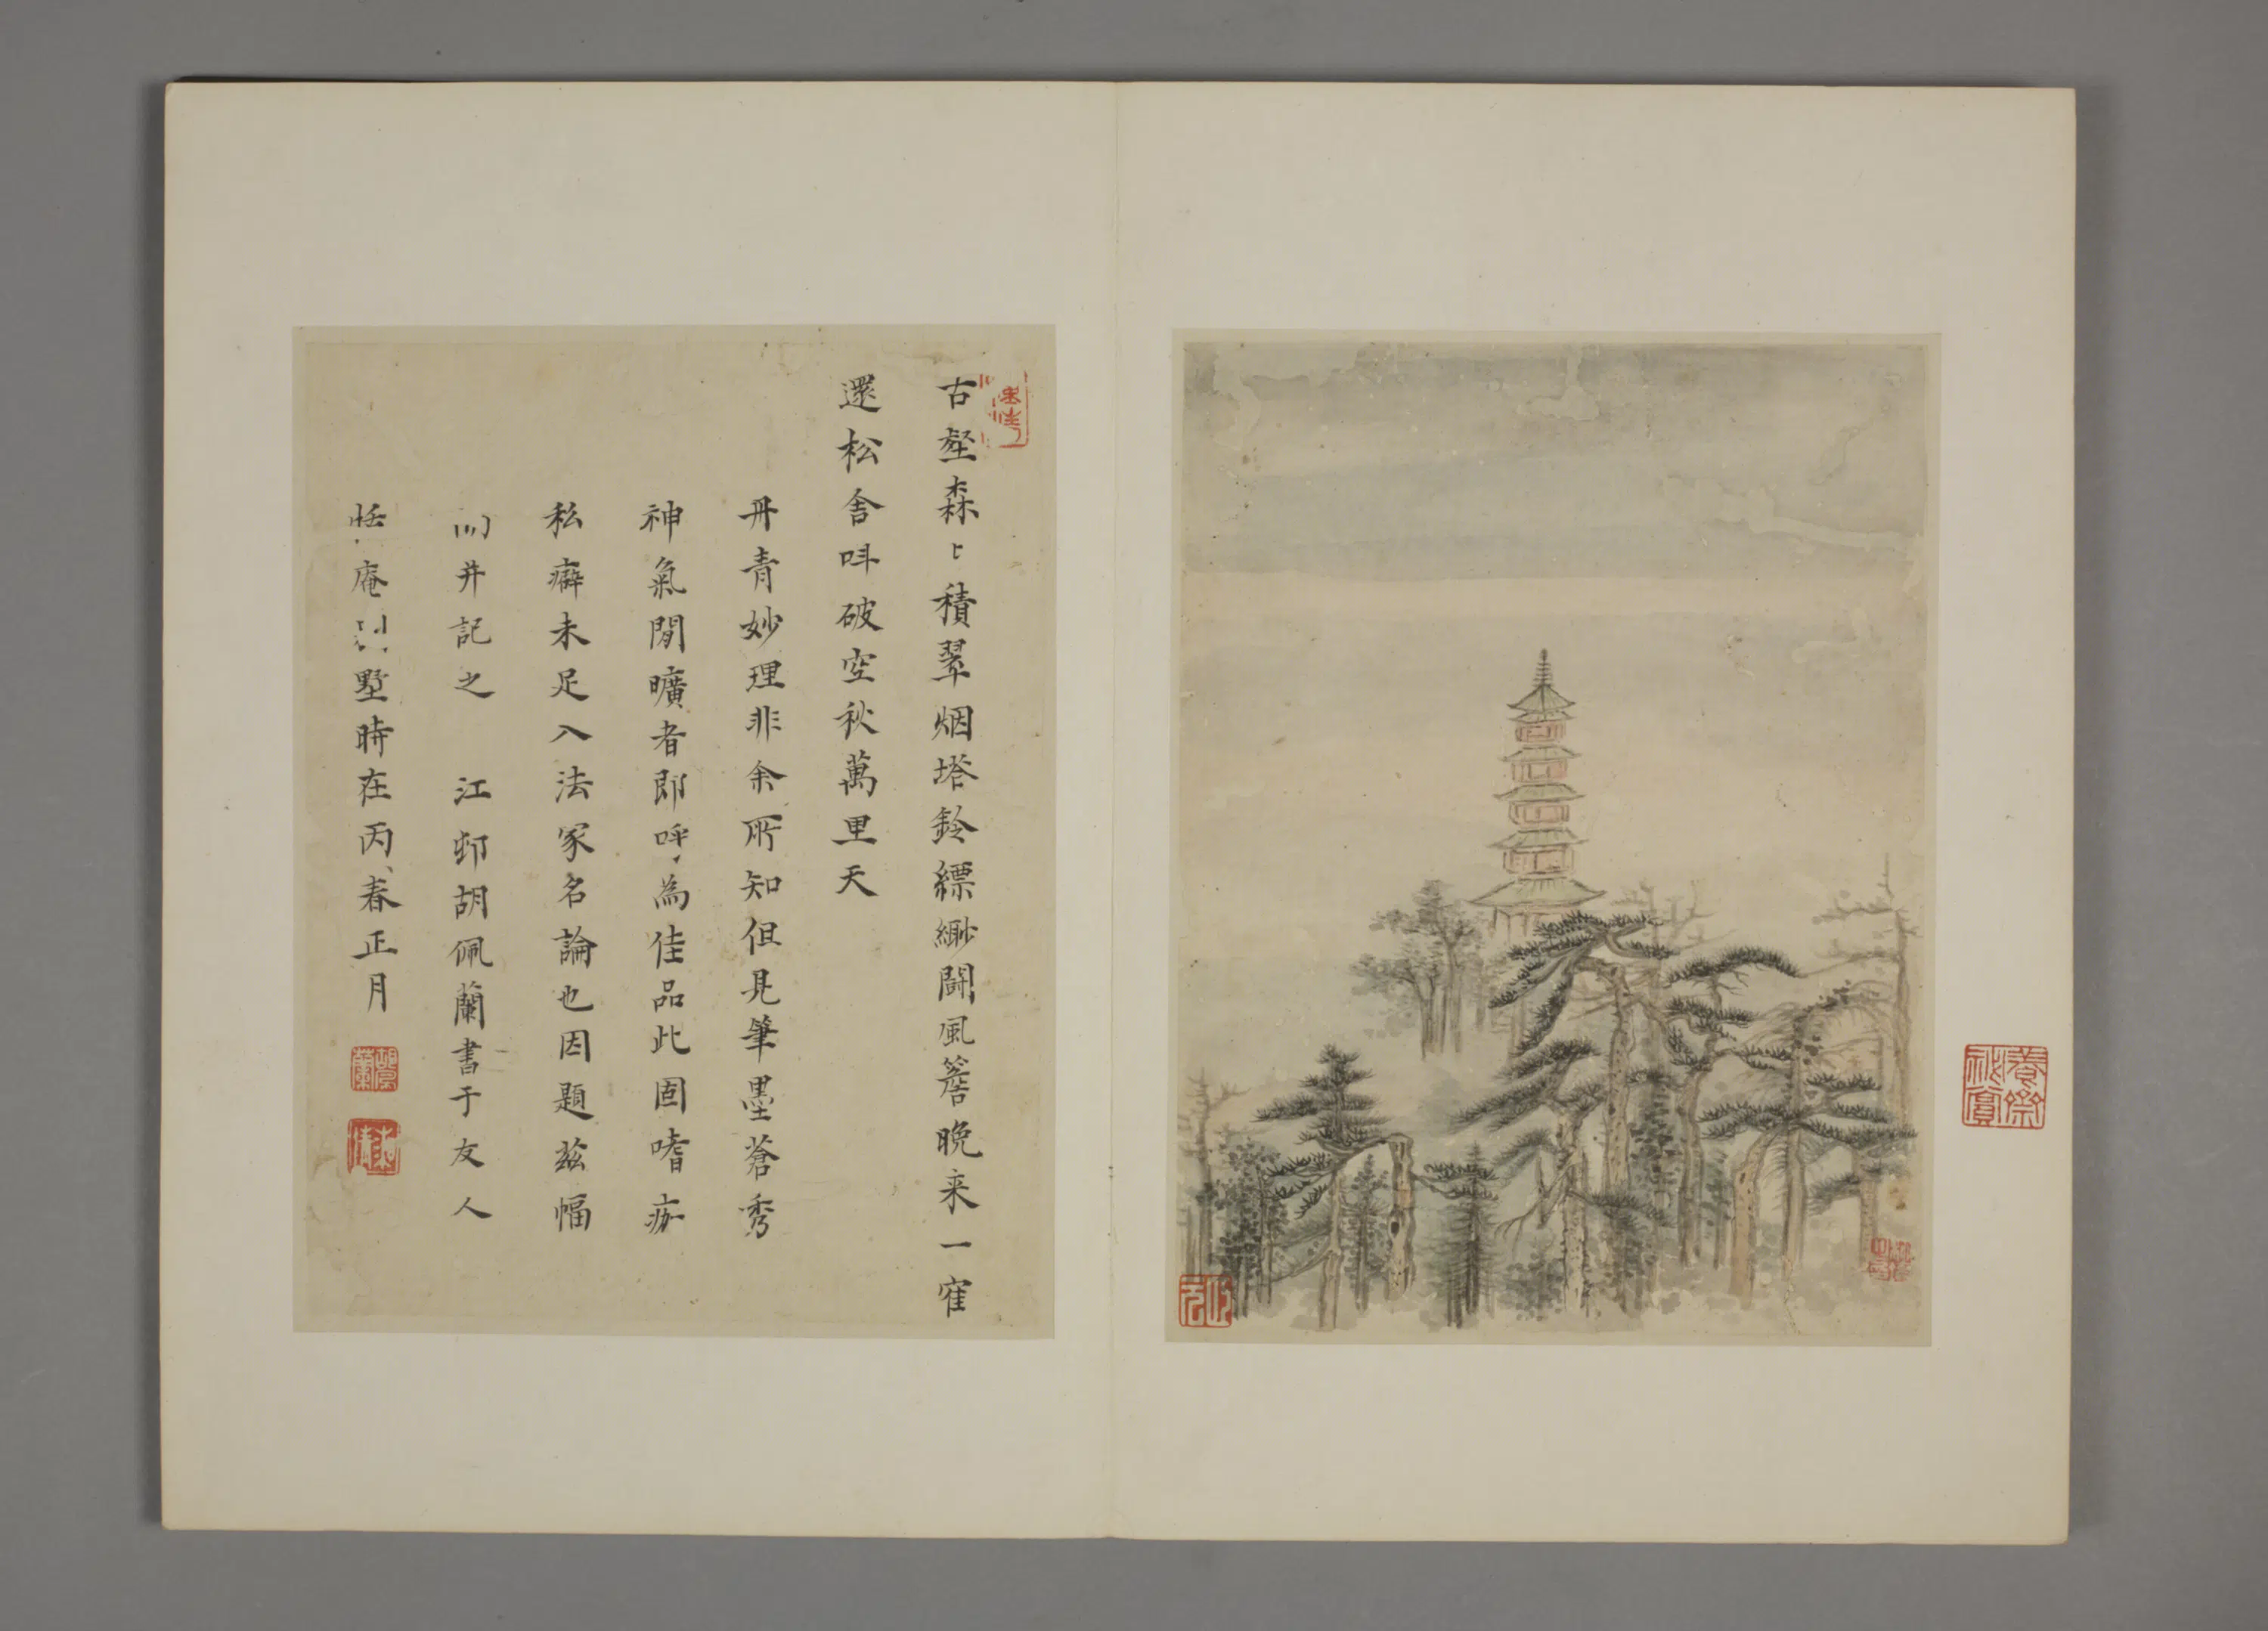 古壑森〻積翠烟塔鈴縹緲鬪風簷晚来一寉
還松舍呌破空秋萬里天
丹青妙理非余所知但見筆墨蒼秀
神氣閒曠者即呼為佳品此固嗜痂
私癖未足入法家名論也因題茲幅
并記之 江邨胡佩蘭書于友人
恬庵墅時在丙春正月